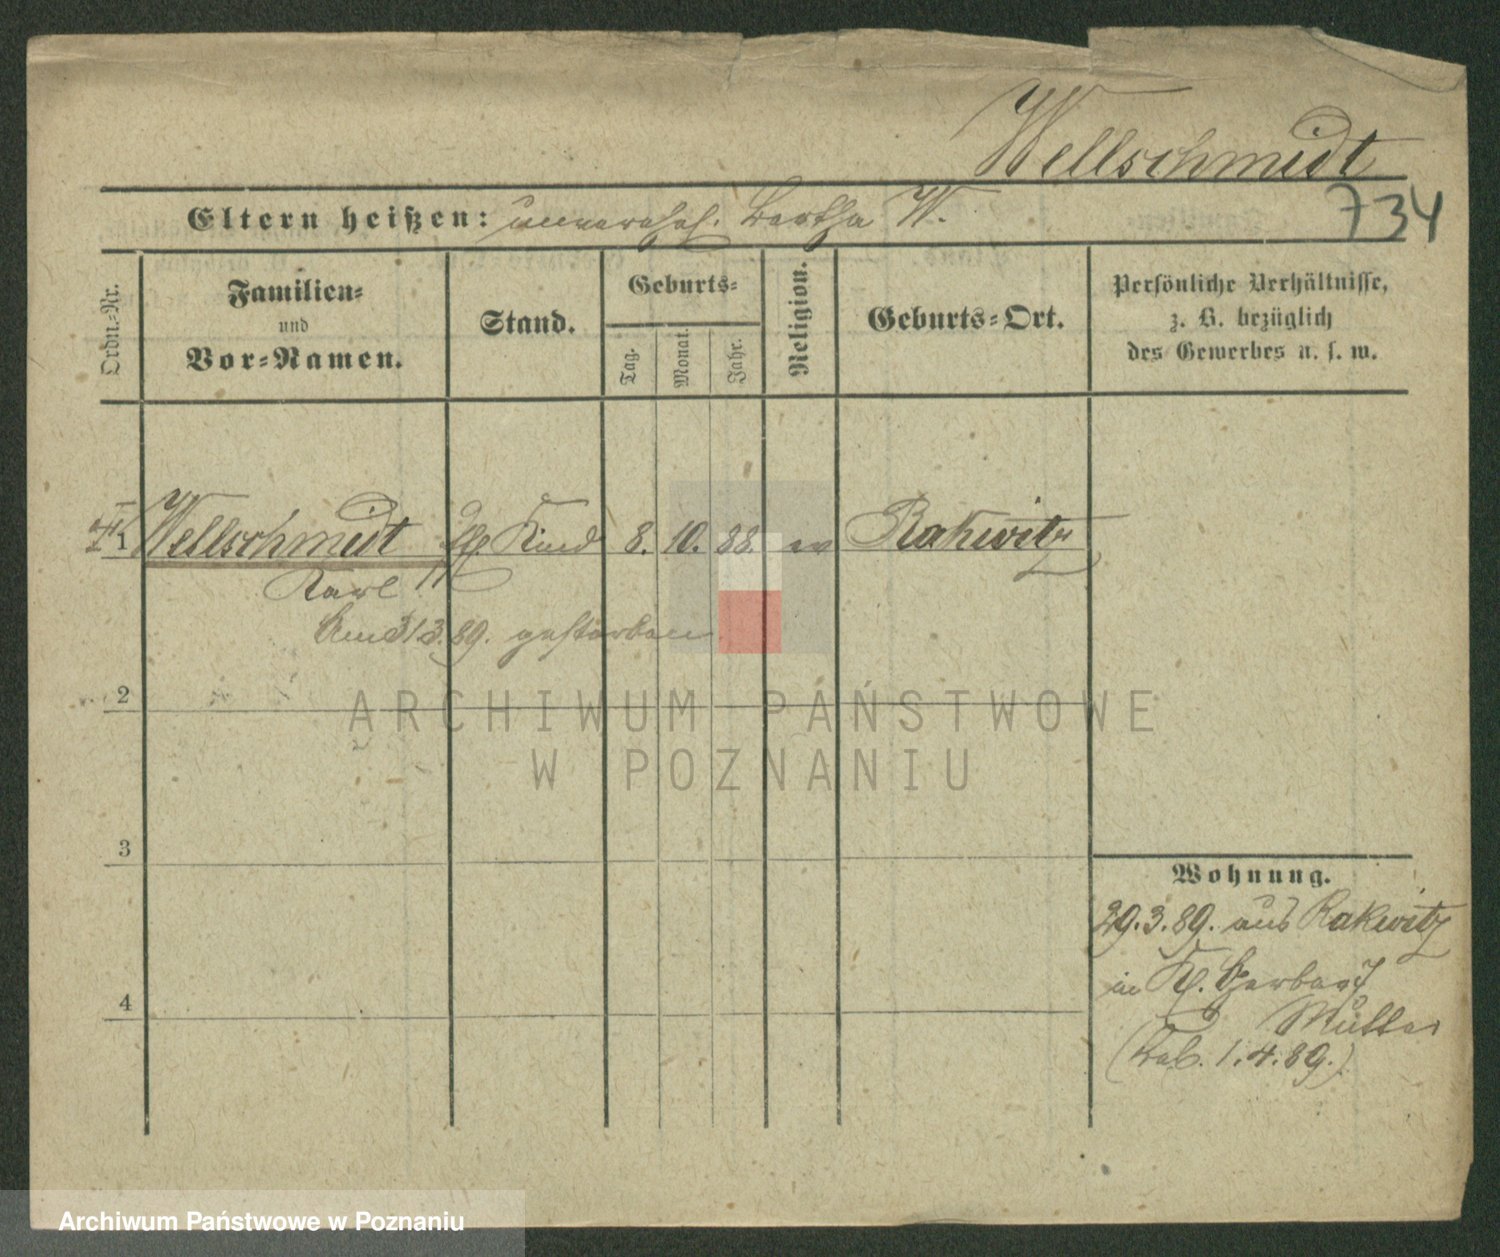 Wellschmidt
734
Eltern heißen: unverehel. Bertha W.
Ordn.-Nr.
Familien-
und
Vor-Namen.
Stand.
Geburts-
Tag.
Monat.
Jahr.
Religion.
Geburts-Ort.
Persönliche Verhältnisse,
z. B. bezüglich
des Gewerbes u. s. w.
1 Wellschmidt Kind 8. 10. 88. ev Rakwitz
Karl
Am 31 3. 89. gestorben
2
3
4
Wohnung.
29. 3. 89. aus Rakwitz
in
Mutter
1. 4. 89.)
ARCHIWUM PAŃSTWOWE
W POZNANIU
Archiwum Państwowe w Poznaniu